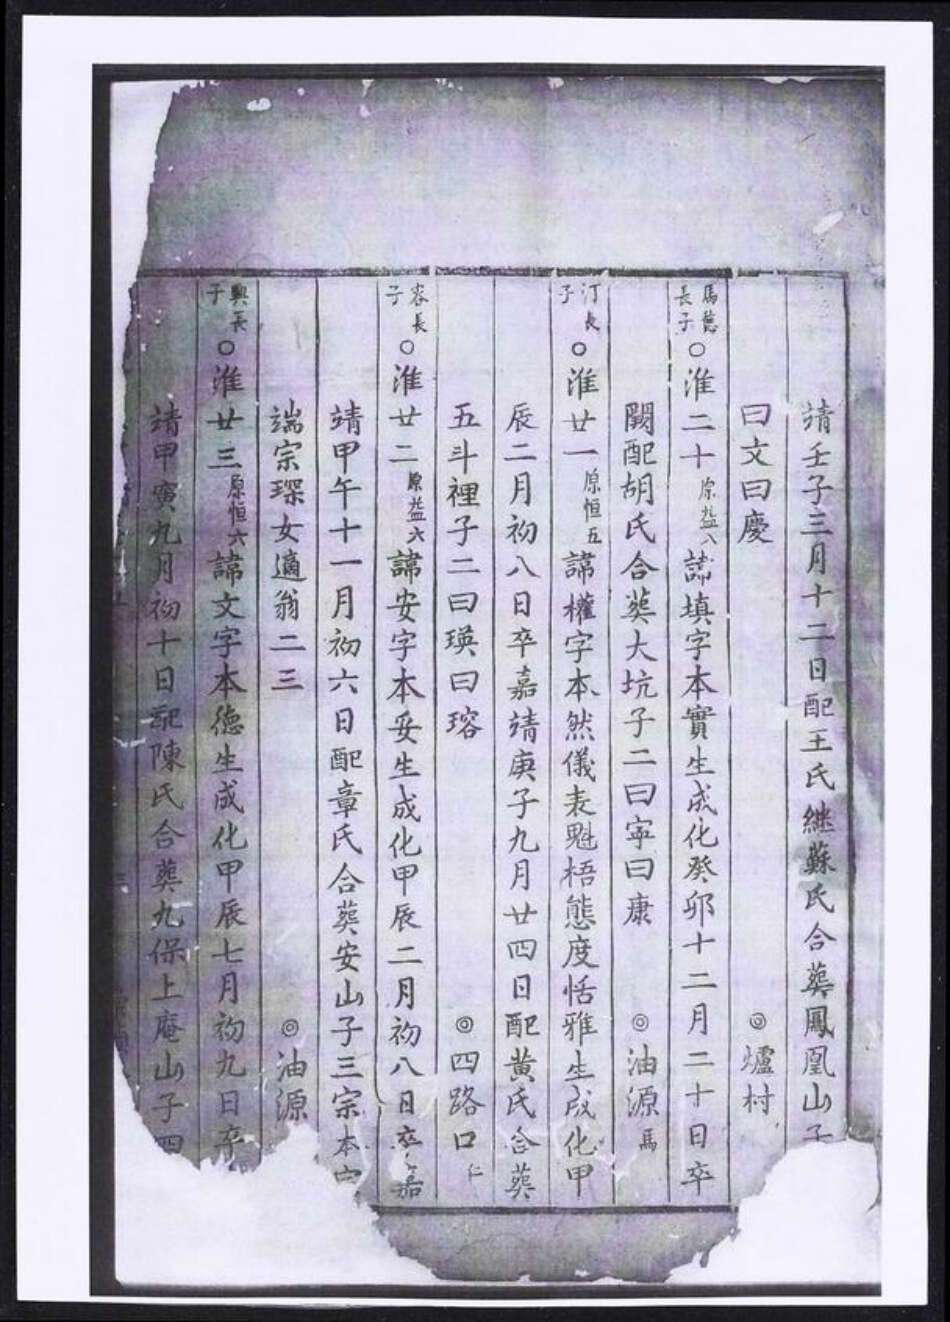 靖壬子三月十二日配王氏継蘇氏合葬鳳凰山子
曰文曰慶 ◎爐村
馬德長子○淮二十原益八諱填字本實生成化癸卯十二月二十日卒
闕配胡氏合葬大坑子二曰寧曰康 ◎油源馬
汀長子○淮廿一原恒五諱權字本然儀表魁梧態度恬雅生成化甲
辰二月初八日卒嘉靖庚子九月廿四日配黃氏合葬
五斗裡子二曰瑛曰瑢 ◎四路口仁
容長子○淮廿二原益六諱安字本妥生成化甲辰二月初八日卒嘉
靖甲午十一月初六日配章氏合葬安山子三宗本宗
端宗琛女適翁二三 ◎油源
興長子○淮廿三原恒六諱文字本德生成化甲辰七月初九日卒
靖甲寅九月初十日配陳氏合葬九保上庵山子四